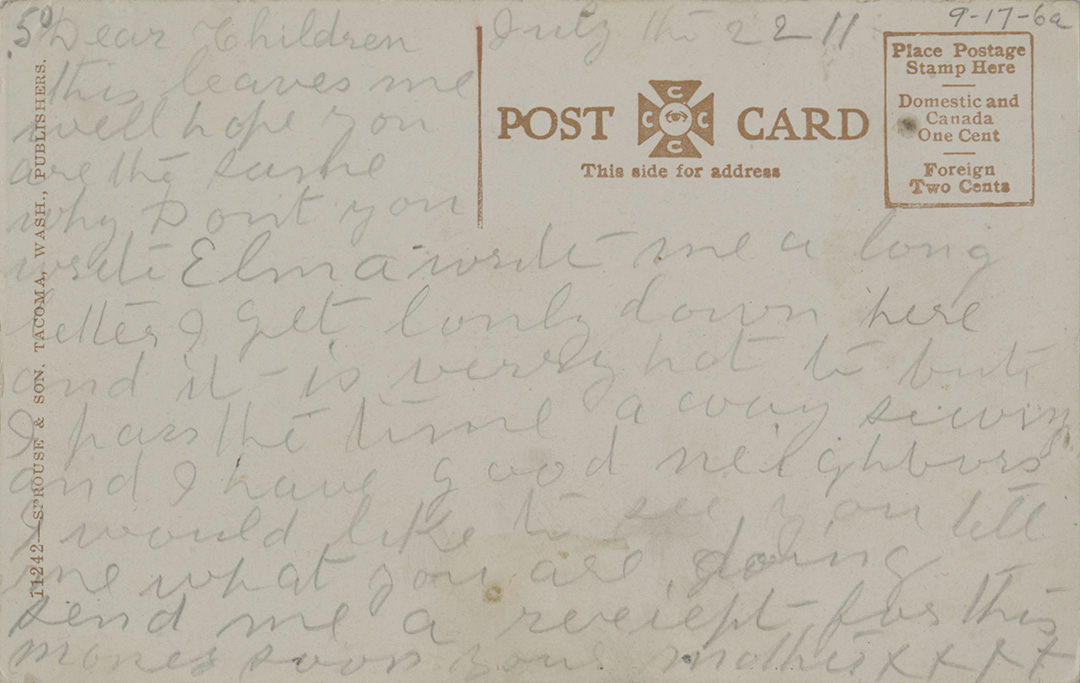 9-17-6a
50
July the 22 11
Dear Children
this leaves me
well hope you
are the same
why Dont you
write Elma write me a long
letter I get lonly down here
and it is verry hot to but
I pass the time a way sewing
and I have good neighbours
I would like to see you tell
me what you are doing
send me a reveiept for this
money soon your mother x x x x
POST CARD
C C C C
This side for address
Place Postage
Stamp Here
Domestic and
Canada
One Cent
Foreign
Two Cents
11242—SPROUSE & SON. TACOMA, WASH., PUBLISHERS.